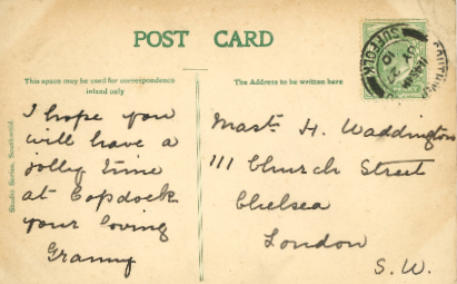 POST CARD
This space may be used for correspondence
inland only
The Address to be written here
I hope you
will have a
jolly time
at Copdock
your loving
Granny
Mastr H. Waddington
111 Church Street
Chelsea
London
S.W.
Studio Series, Southwold.
SUFFOLK